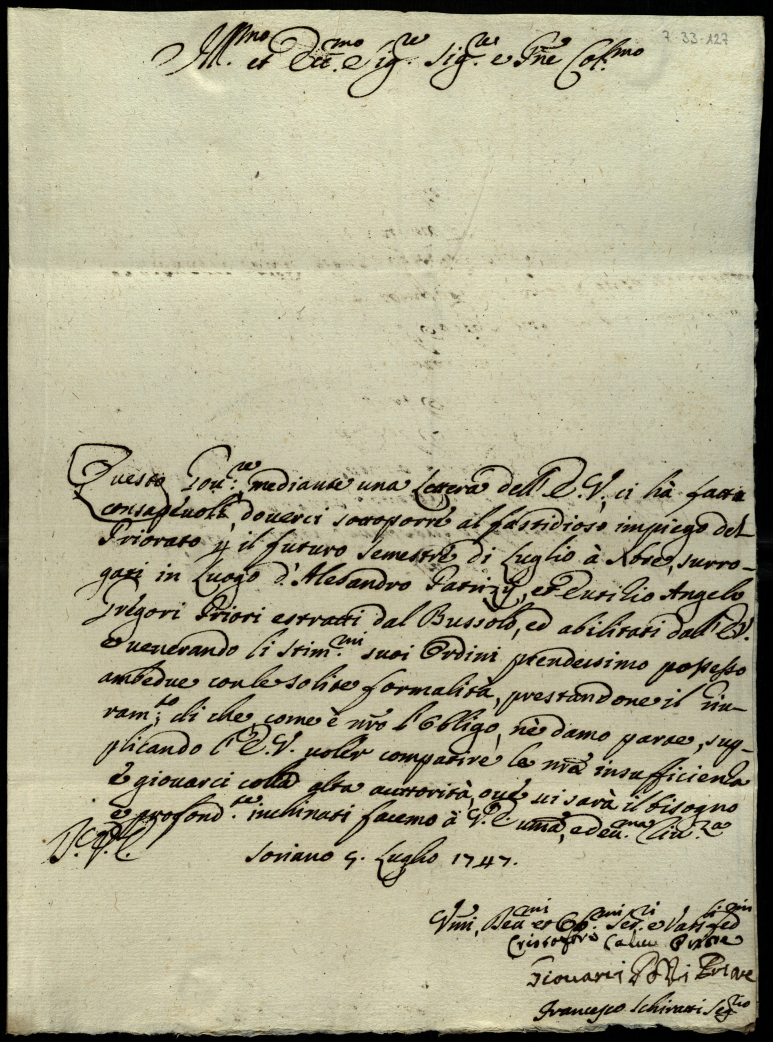 7-33-127
Ill.mo et Ecc.mo Sig.re Sig.re e Pne Col.mo
Questo Gou.re, mediante una Lettera dell' E.V, ci hà fatti
consapevoli, douerci sottoporre al fastidioso impiego del
Priorato p il futuro semestre di Luglio à Xbre, surro-
gati in Luogo d'Alesandro Patrizij, et Eutilio Angelo
Gregori Priori estratti dal Bussolo, ed abilitati dall' E.V.
e uenerando li stim.mi suoi Ordini prendessimo possesso
ambedue con le solite formalità, prestandone il giu-
ram.to; di che, come è nro l'Obligo, nè damo parte, sup-
plicando l'E.V. uoler compatire la nra insufficienza
è giouarci colla alta auttorità, oue ui sarà il bisogno
e profond.te inchinati facemo à V.E. uma, e deu.ma riu.za
D. V. E.
Soriano 5. Luglio 1747.
Vmi, Deu.mi et Ob.mi Ser.ri e Vass.li
Cristofero
Giouanni
Francesco Schiratti Seg.rio